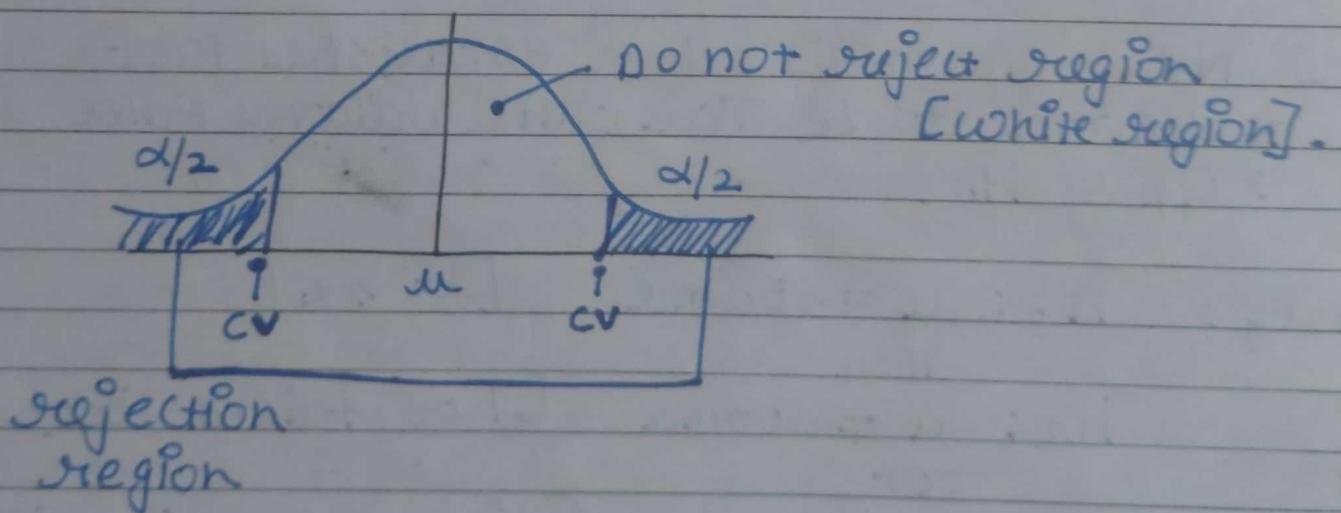 Do not reject region
[white region].
α/2
α/2
μ
CV
CV
rejection
region